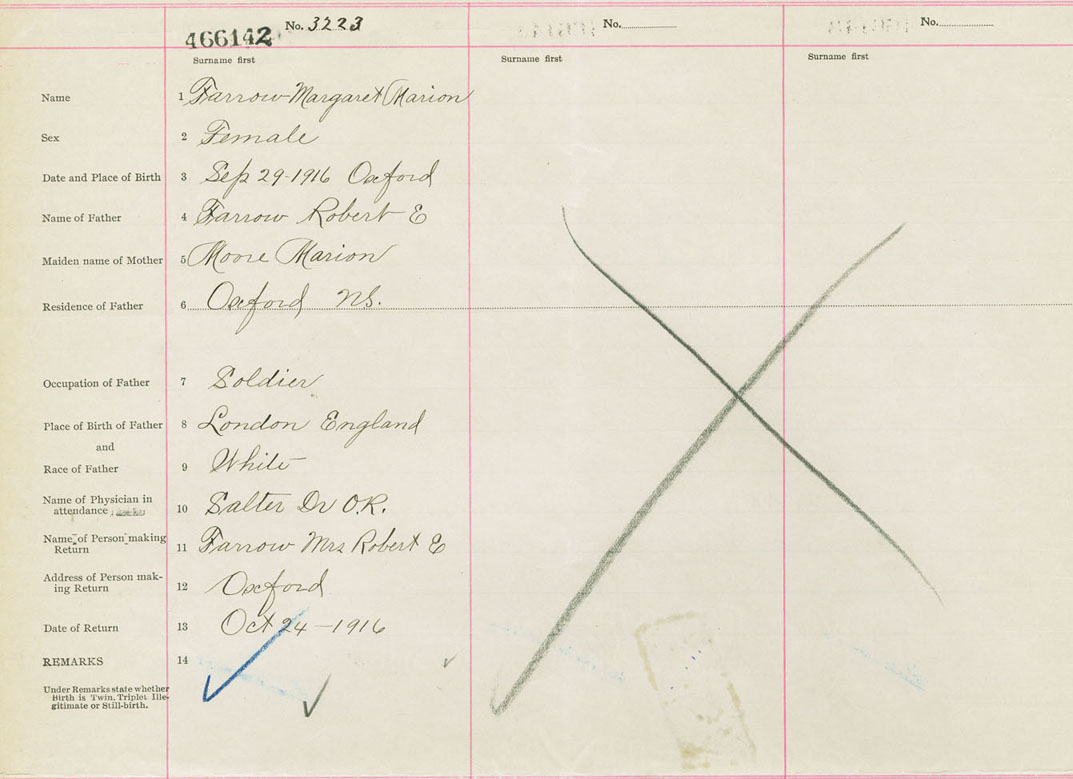 No. 3223 No. No.
466142
Surname first Surname first Surname first
Name 1 Farrow Margaret Marion
Sex 2 Female
Date and Place of Birth 3 Sep 29-1916 Oxford
Name of Father 4 Farrow Robert E
Maiden name of Mother 5 Moore Marion
Residence of Father 6 Oxford NS.
Occupation of Father 7 Soldier
Place of Birth of Father 8 London England
and
Race of Father 9 White
Name of Physician in
attendance 10 Salter Dr O.R.
Name of Person making
Return 11 Farrow Mrs Robert E
Address of Person mak-
ing Return 12 Oxford
Date of Return 13 Oct 24-1916
REMARKS 14
Under Remarks state whether
Birth is Twin, Triplet, Ille-
gitimate or Still-birth.